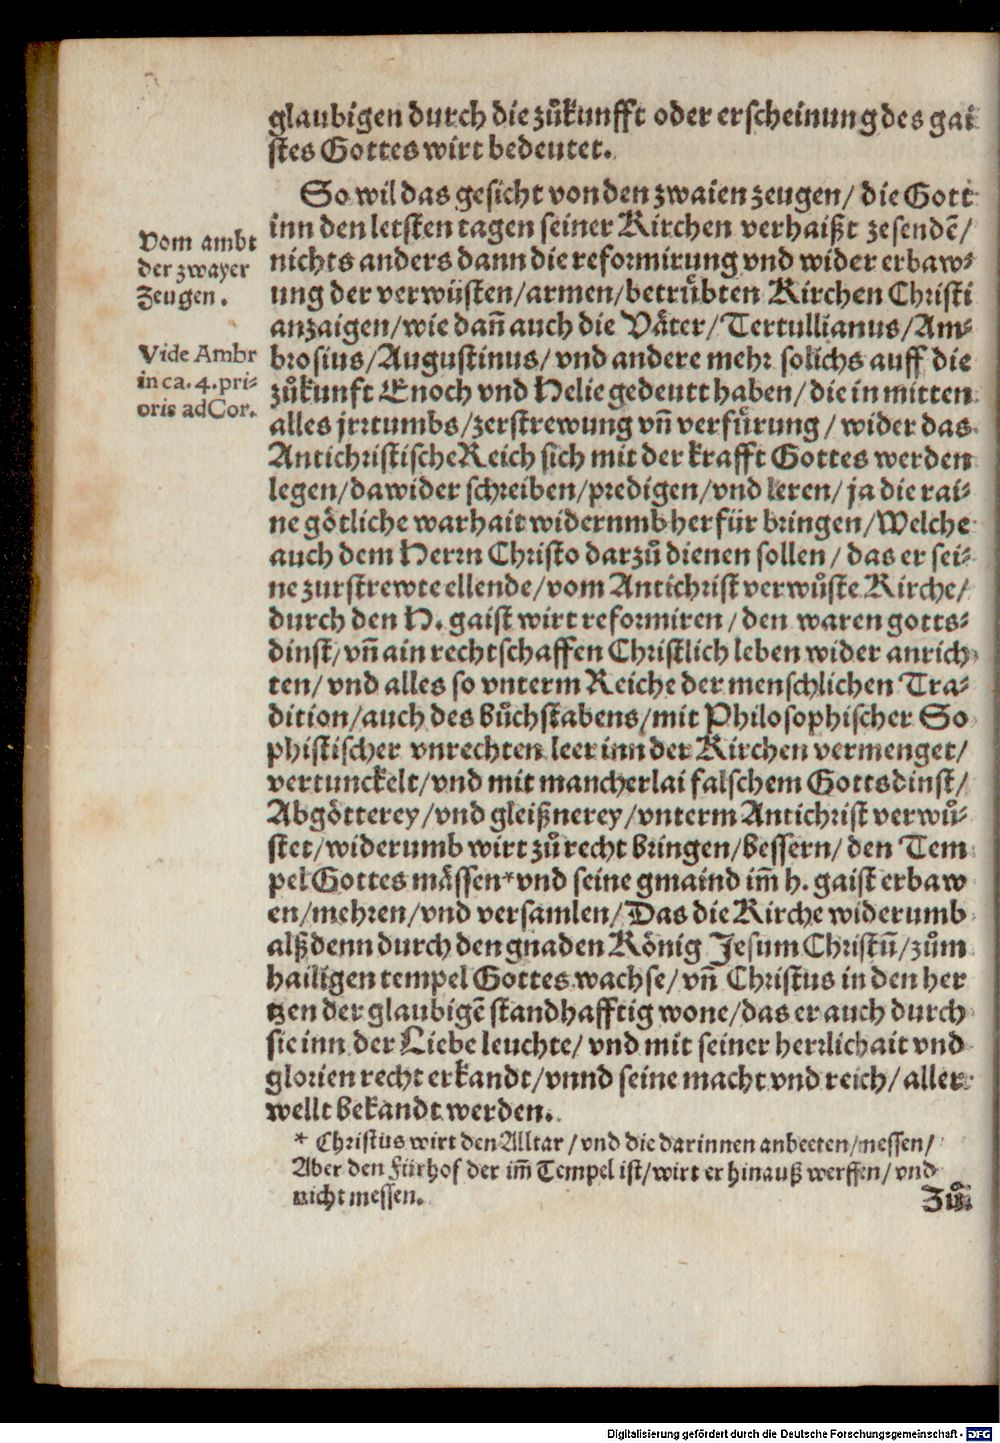 glaubigen durch die zůkunfft oder erscheinung des gai
stes Gottes wirt bedeutet.
So wil das gesicht von den zwaien zeugen/ die Gott
inn den letsten tagen seiner Kirchen verhaißt zesendē/
Vom ambt
der zwayer
Zeugen.
nichts anders dann die reformirung vnd wider erbaw⸗
ung der verwüsten/armen/betrůbten Kirchen Christi
anzaigen/wie dañ auch die Väter/Tertullianus/Am⸗
Vide Ambr
in ca. 4. pri⸗
oris ad Cor.
brosius/Augustinus/vnd andere mehr solichs auff die
zůkunft Enoch vnd Helie gedeutt haben/die in mitten
alles jrrtumbs/zerstrewung vñ verfůrung/ wider das
Antichristische Reich sich mit der krafft Gottes werden
legen/dawider schreiben/predigen/vnd leren/ ja die rai⸗
ne götliche warhait widerumb herfür bringen/Welche
auch dem Herrn Christo darzů dienen sollen/ das er sei⸗
ne zurstrewte ellende/vom Antichrist verwůste Kirche/
durch den H. gaist wirt reformiren/den waren gotts⸗
dinst/vñ ain rechtschaffen Christlich leben wider anrich⸗
ten/vnd alles so vnterm Reiche der menschlichen Tra⸗
dition/auch des bůchstabens/mit Philosophischer So
phistischer vnrechten leer inn der Kirchen vermenget/
vertunckelt/vnd mit mancherlai falschem Gottsdinst/
Abgötterey/vnd gleißnerey/vnterm Antichrist verwů⸗
stet/widerumb wirt zů recht bringen/bessern/den Tem
pel Gottes mässen*vnd seine gmaind im̄ h. gaist erbaw
en/mehren/vnd versamlen/Das die Kirche widerumb
alßdenn durch den gnaden König Jesum Christū/zům
hailigen tempel Gottes wachse/vñ Christus in den her
tzen der glaubigē standhafftig wone/das er auch durch
sie inn der Liebe leuchte/ vnd mit seiner herrlichait vnd
glorien recht erkandt/vnnd seine macht vnd reich/aller
wellt bekandt werden.
* Christus wirt den Alltar/vnd die darinnen anbeeten/messen/
Aber den Fürhof der im̄ Tempel ist/wirt er hinauß werffen/vnd
nicht messen.
Zů
Digitalisierung gefördert durch die Deutsche Forschungsgemeinschaft - DFG